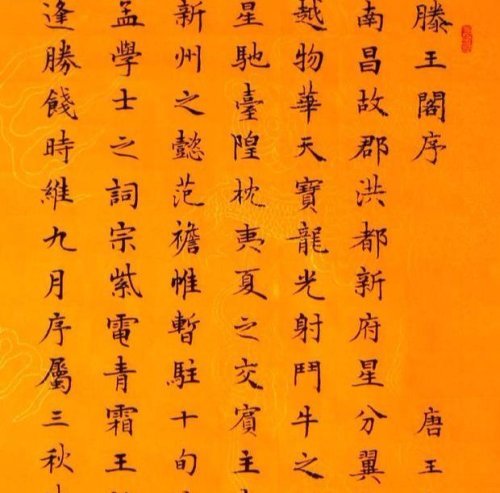 滕王閣序 唐王
南昌故郡洪都新府星分翼
越物華天寶龍光射鬥牛之
星馳臺隍枕夷夏之交賓主
新州之懿范襜帷暫駐十旬
孟學士之詞宗紫電青霜王
逢勝餞時維九月序屬三秋